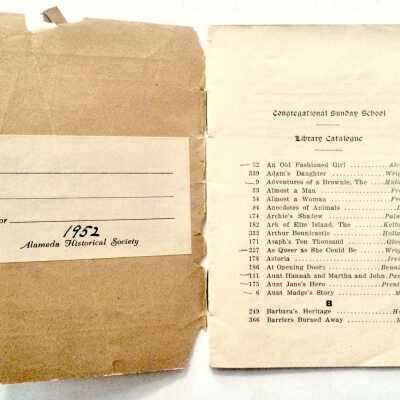 or 1952
Alameda Historical Society
Congregational Sunday School
Library Catalogue
52 An Old Fashioned Girl
339 Adam's Daughter
9 Adventures of a Brownie, The
33 Almost a Man
54 Almost a Woman
84 Anecdotes of Animals
174 Archie's Shadow
182 Ark of Elm Island, The
332 Arthur Bonnicastle
171 Asaph's Ten Thousand
327 As Queer as She Could Be
178 Astoria
186 At Opening Doors
111 Aunt Hannah and Martha and John,
175 Aunt Jane's Hero
6 Aunt Madge's Story
B
249 Barbara's Heritage
366 Barriers Burned Away